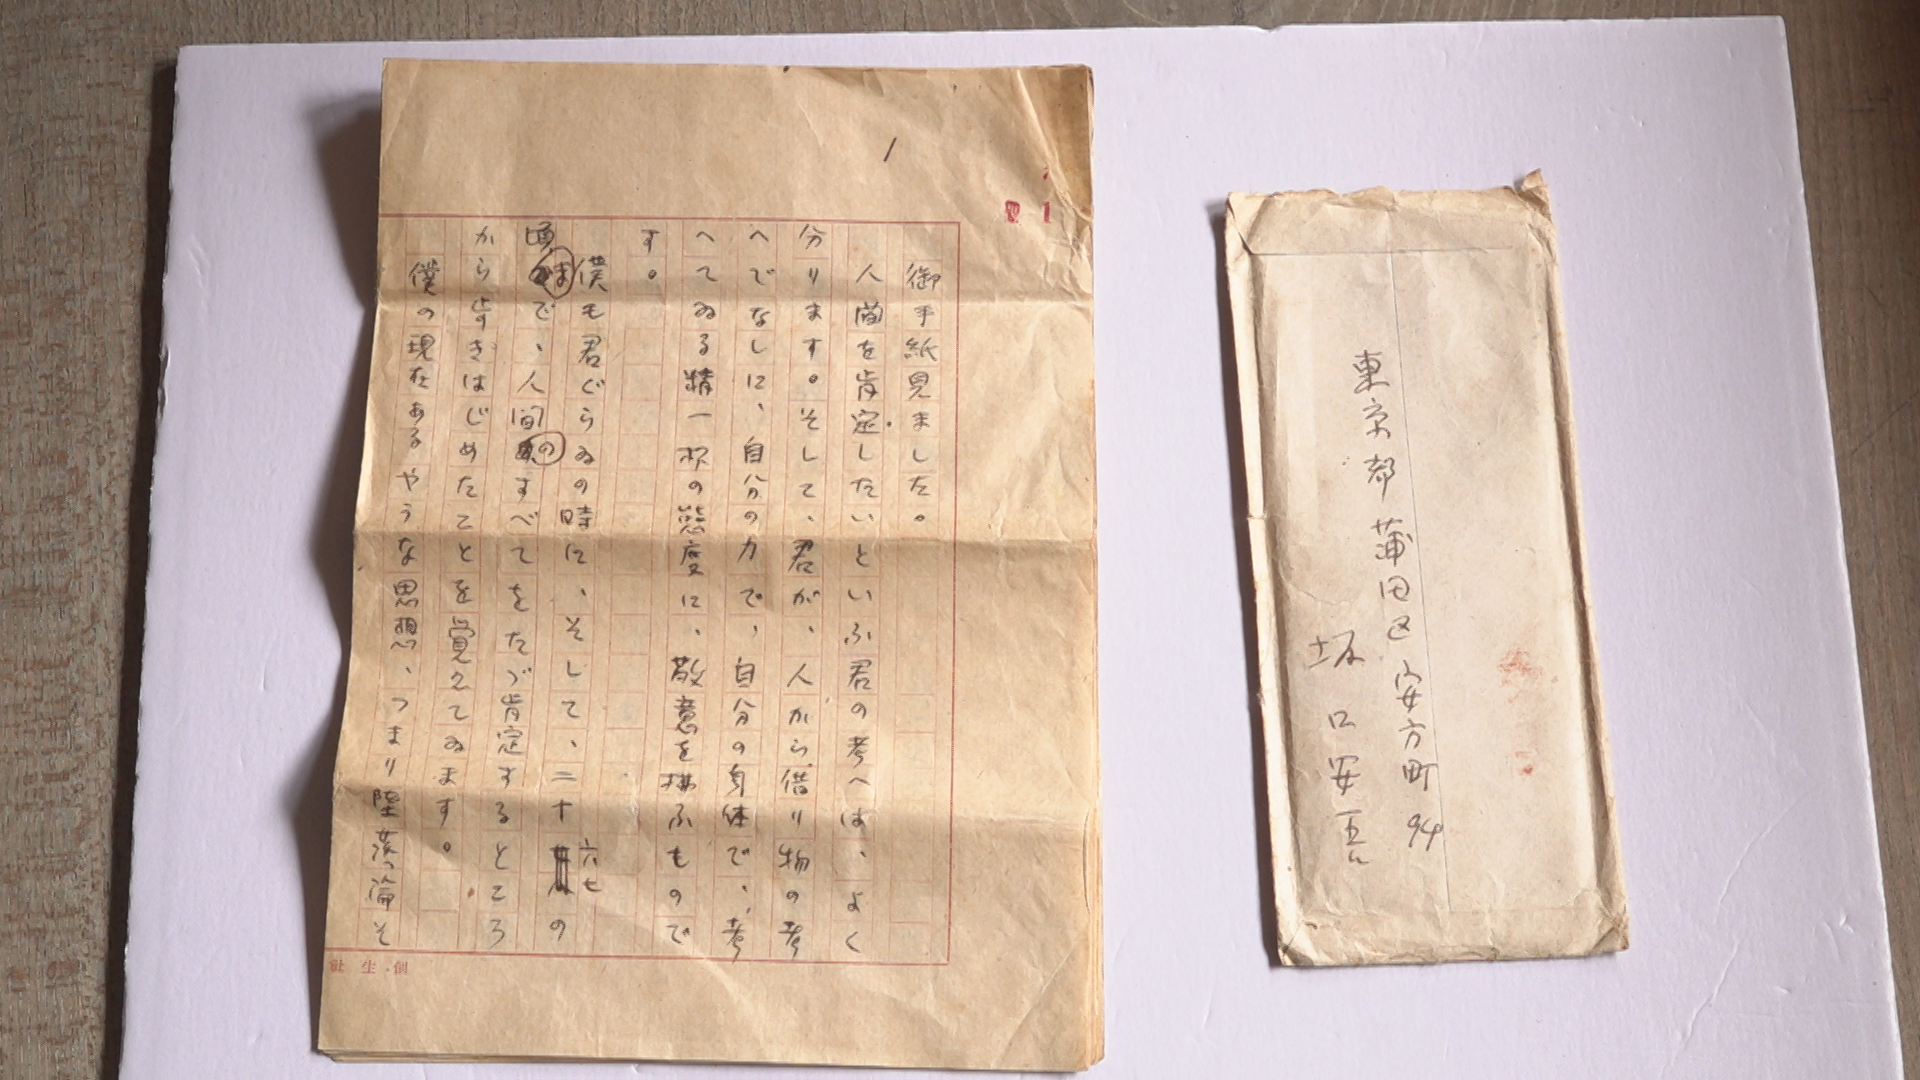 1
御手紙見ました。
人間を肯定したいといふ君の考へは、よく
分ります。そして、君が、人から借り物の考
へでなしに、自分の力で、自分の身体で、考
へてゐる精一杯の態度に、敬意を払ふもので
す。
僕も君ぐらゐの時に、そして、二十六七の
頃まで、人間のすべてをたゞ肯定するところ
から歩きはじめたことを覚えてゐます。
僕の現在あるやうな思想、つまり堕落論そ
個生社
東京都蒲田区安方町94
坂口安吾